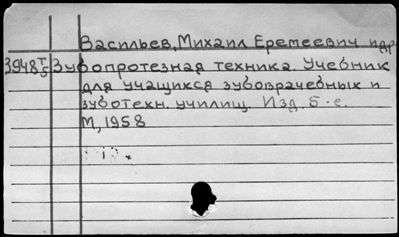 Васильев, Михаил Еремеевич и др
3948 т/5 Зубопротезная техника. Учебник
для учащихся зубоврачебных и
зуботехн. училищ. Изд. 5-е.
М, 1958